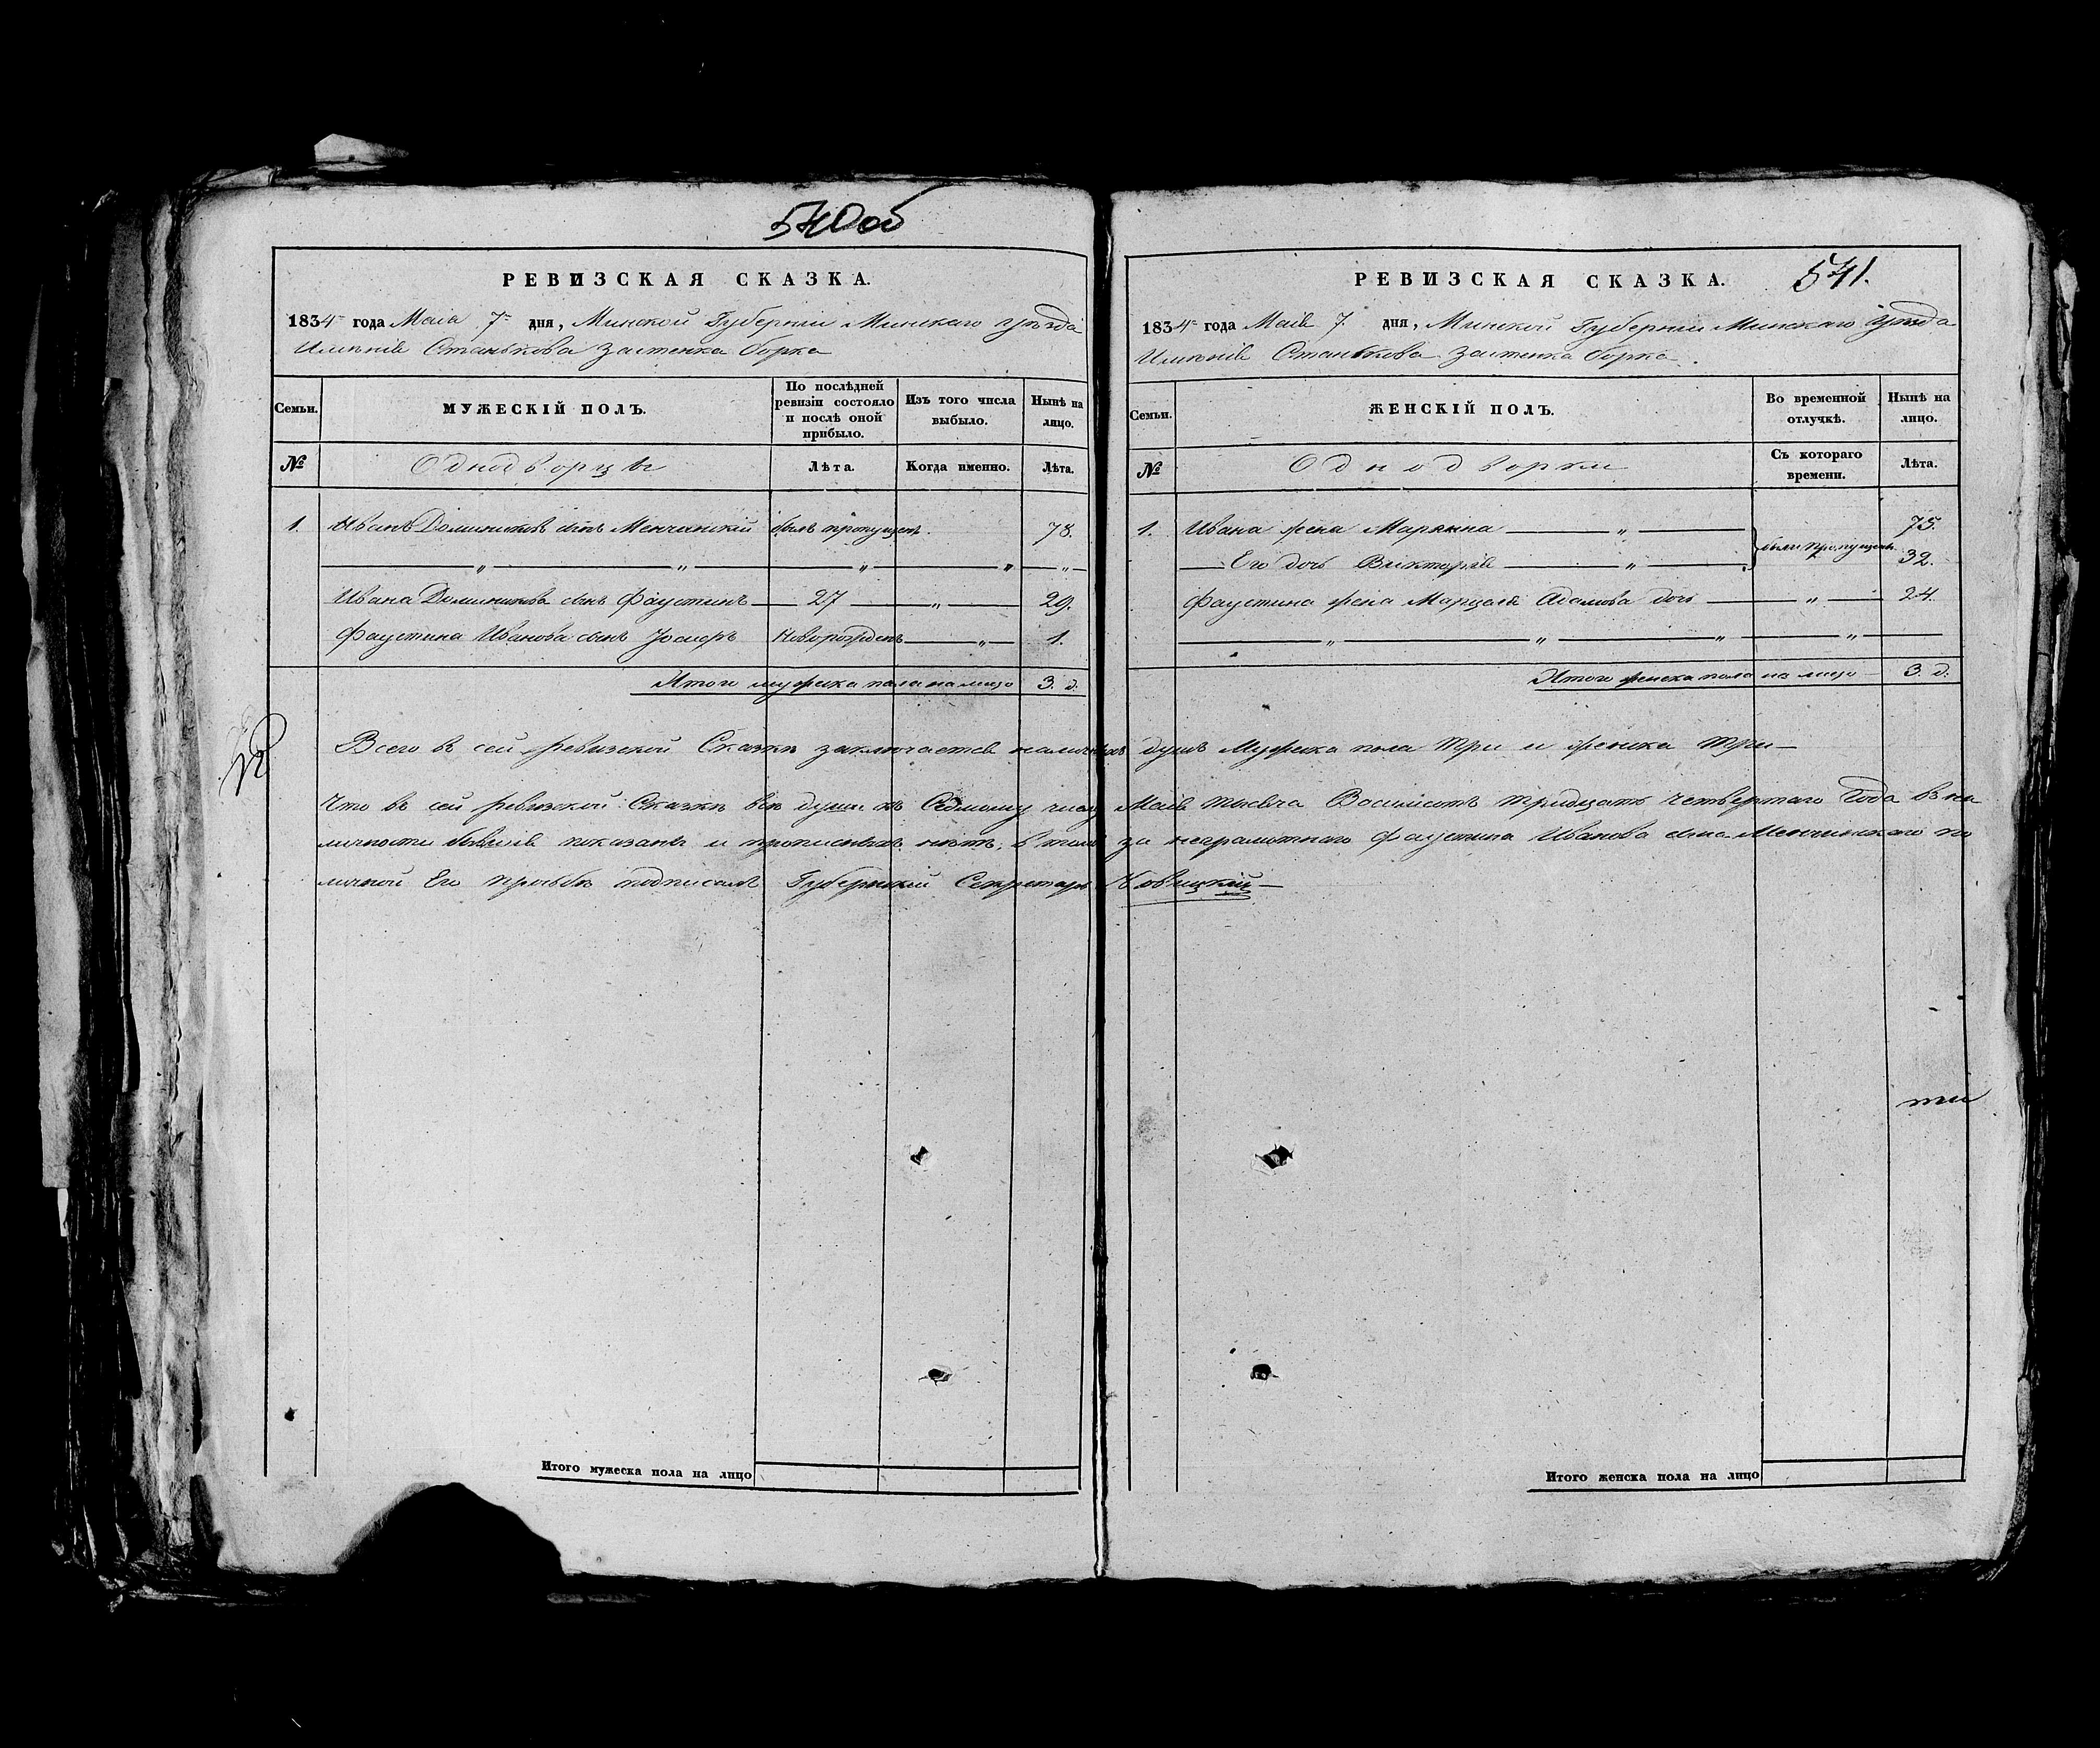 540об
РЕВИЗСКАЯ СКАЗКА.
1834 года Маія 7 дня, Минской Губерніи Минскаго уѣзда
Имѣнія Станькова Застенка Борка
Семьи.
МУЖЕСКІЙ ПОЛЪ.
По послѣдней ревизіи состояло и послѣ оной прибыло.
Изъ того числа выбыло.
Нынѣ на лицо.
№
Однодворцы
Лѣта.
Когда именно.
Лѣта.
1. Иванъ Доминиковъ сынъ Менчинскій былъ пропущенъ. 78.
Ивана Доминикова сынъ Фаустинъ 27 " 29.
Фаустина Иванова сынъ Іосифъ Новорожденъ " 1.
Итого мужска пола на лицо 3. д.
541.
РЕВИЗСКАЯ СКАЗКА.
1834 года Маія 7. дня, Минской Губерніи Минскаго уѣзда
Имѣнія Станькова Застенка Борка.
Семьи.
ЖЕНСКІЙ ПОЛЪ.
Во временной отлучкѣ.
Нынѣ на лицо.
№
Однодворки
Съ котораго времени.
Лѣта.
1. Ивана жена Марьяна " 75.
были пропущены
Его дочь Викторія " 32.
Фаустина жена Марцеля Адамова дочь " 24.
Итого женска пола на лицо 3. д.
Всего въ сей ревизской Сказкѣ заключается наличныхъ душъ Мужска пола три и женска три
Что въ сей ревизской Сказкѣ всѣ души къ Седьмому числу Маія тысяча Восемьсотъ тридцать четвертаго Года въ на
личности бывшія показаны и прописныхъ нѣтъ, въ томъ за неграмотнаго Фаустина Иванова сына Менчинскаго по
личной Его прозьбѣ подписалъ Губернскій Секретарь
ти
Итого мужеска пола на лицо
Итого женска пола на лицо